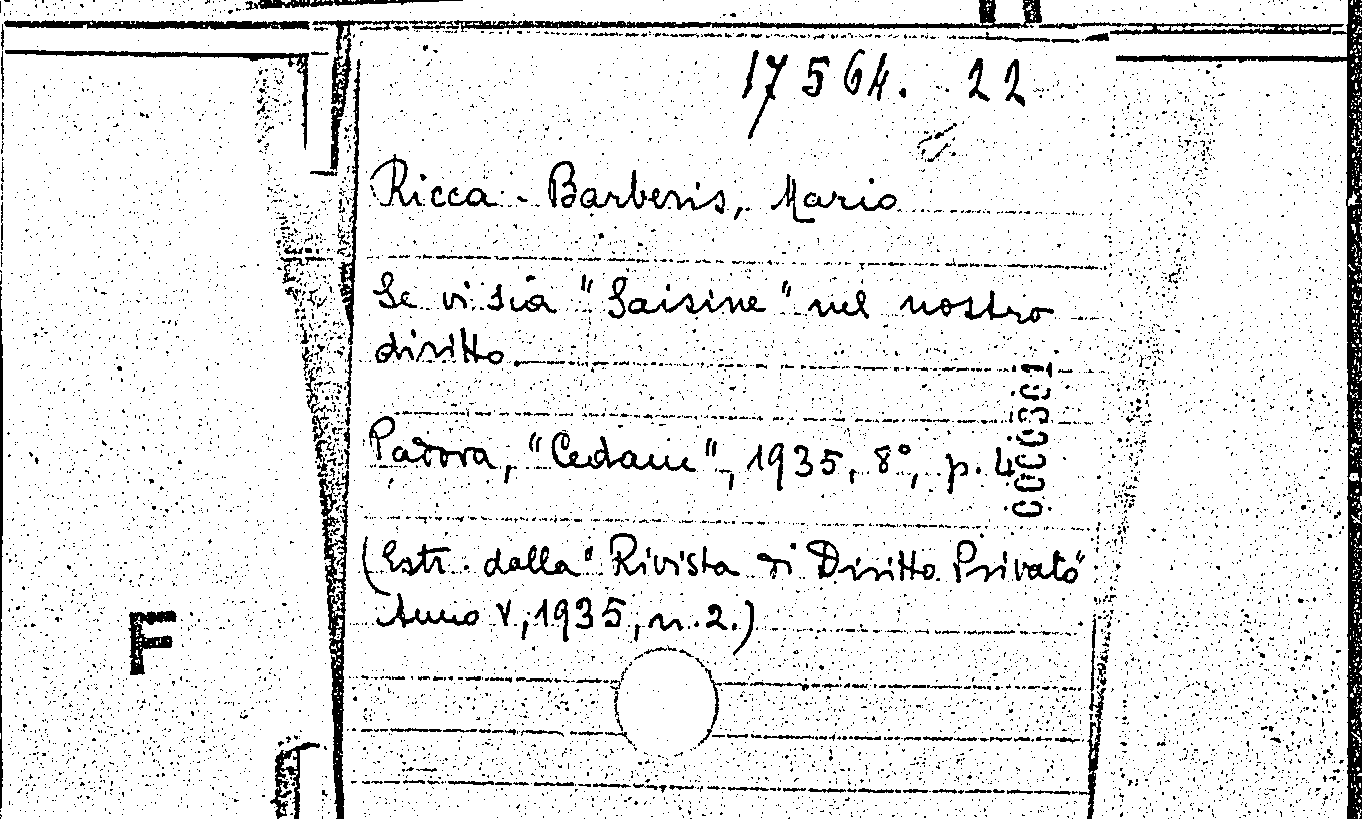 17564. 22
Ricca - Barberis, Mario
Se vi sia "Saisine" nel nostro
diritto.
Padova, "Cedam", 1935, 8°, p. 4
0000301
(Estr. dalla "Rivista di Diritto Privato"
Anno V, 1935, n. 2.)
F